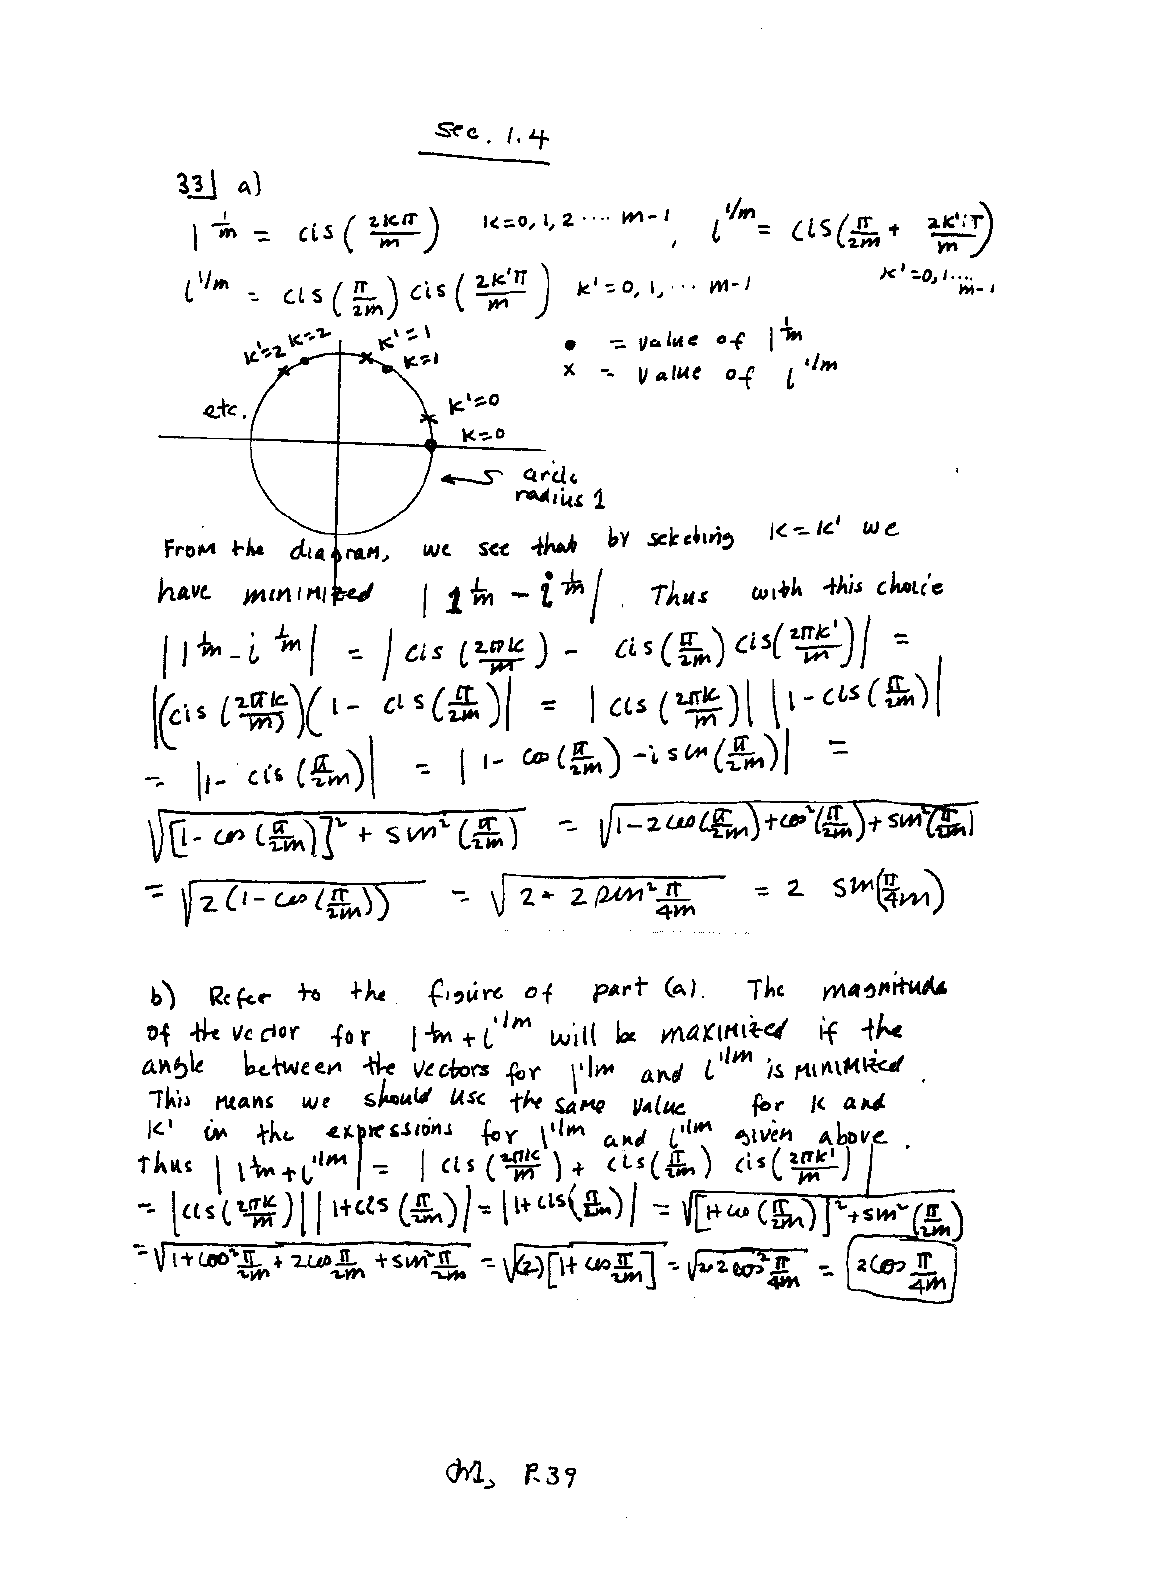 Sec. 1.4
33] a)
1^{1/m} = cis(2kπ/m) k=0,1,2 .... m-1, i^{1/m} = cis(π/2m + 2k'π/m)
i^{1/m} = cis(π/2m) cis(2k'π/m) k'=0,1,... m-1 k'=0,1.... m-1
k'=2 k=2 k'=1
k=1
etc. k'=0
k=0
• = value of 1^{1/m}
x = value of i^{1/m}
circle
radius 1
From the diagram, we see that by selecting k=k' we
have minimized |1^{1/m} - i^{1/m}|. Thus with this choice
|1^{1/m} - i^{1/m}| = |cis(2πk/m) - cis(π/2m) cis(2πk'/m)| =
|(cis(2πk/m)(1 - cis(π/2m)| = |cis(2πk/m)| |1-cis(π/2m)|
= |1- cis(π/2m)| = |1- cos(π/2m) - i sin(π/2m)| =
√([1-cos(π/2m)]² + sin²(π/2m)) = √(1-2cos(π/2m)+cos²(π/2m)+sin²(π/2m))
= √(2(1-cos(π/2m))) = √(2·2 sin² π/4m) = 2 sin(π/4m)
b) Refer to the figure of part (a). The magnitude
of the vector for 1^{1/m} + i^{1/m} will be maximized if the
angle between the vectors for 1^{1/m} and i^{1/m} is minimized.
This means we should use the same value for k and
k' in the expressions for 1^{1/m} and i^{1/m} given above.
Thus |1^{1/m} + i^{1/m}| = |cis(2πk/m) + cis(π/2m) cis(2πk'/m)|
= |cis(2πk/m)| |1+cis(π/2m)| = |1+cis(π/2m)| = √([1+cos(π/2m)]²+sin²(π/2m))
= √(1+cos² π/2m + 2cos π/2m + sin² π/2m) = √((2)[1+cos π/2m]) = √(2·2cos² π/4m) = 2cos π/4m
P.39